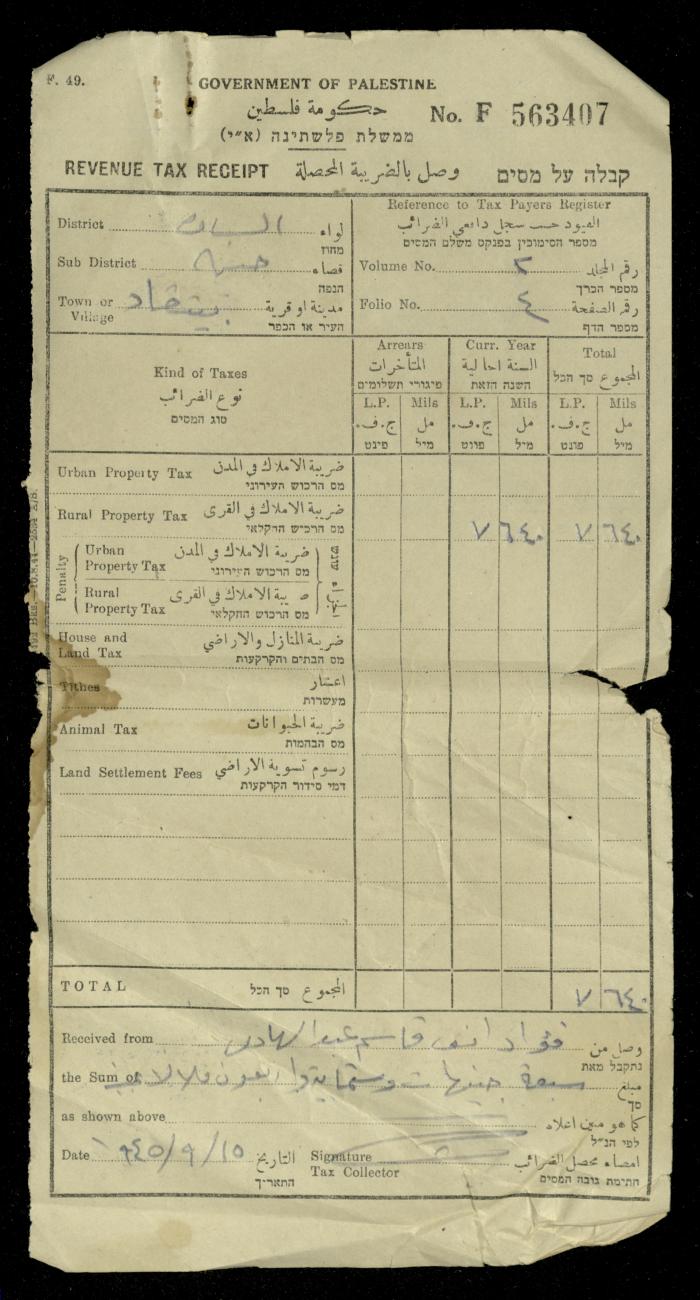 F. 49.
GOVERNMENT OF PALESTINE
حكومة فلسطين
No. F 563407
ממשלת פלשתינה (א״י)
REVENUE TAX RECEIPT وصل بالضريبة المحصلة קבלה על מסים
Reference to Tax Payers Register
القيود حسب سجل دافعي الضرائب
מספר הסימוכין בפנקס משלם המסים
District لواء
מחוז
Sub District جنين قضاء
הנפה
Town or Village مدينة او قرية
העיר או הכפר
Volume No. ٢ رقم المجلد
מספר הכרך
Folio No. ٤ رقم الصفحة
מספר הדף
Kind of Taxes
نوع الضرائب
סוג המסים
Arrears Curr. Year Total
المتأخرات السنة الحالية المجموع סך הכל
פיגורי תשלומים השנה הזאת
L.P. Mils L.P. Mils L.P. Mils
ج.ف. مل ج.ف. مل ج.ف. مل
פונט מיל פונט מיל פונט מיל
Urban Property Tax ضريبة الاملاك في المدن
מס הרכוש העירוני
Rural Property Tax ضريبة الاملاك في القرى ٧ ٦٤٠ ٧ ٦٤٠
מס הרכוש החקלאי
Penalty الجزاء עונש
Urban Property Tax ضريبة الاملاك في المدن
מס הרכוש העירוני
Rural Property Tax ضريبة الاملاك في القرى
מס הרכוש החקלאי
House and Land Tax ضريبة المنازل والاراضي
מס הבתים והקרקעות
Tithes اعشار
מעשרות
Animal Tax ضريبة الحيوانات
מס הבהמות
Land Settlement Fees رسوم تسوية الاراضي
דמי סידור הקרקעות
TOTAL المجموع סך הכל ٧ ٦٤٠
Received from فؤاد افندي قاسم عبد الهادي وصل من
נתקבל מאת
the Sum of سبعة جنيهات وستماية واربعون ملا لا غير مبلغ
סך
as shown above كما هو مبين اعلاه
לפי הנ״ל
Date ١٩٤٥/٩/١٥ التاريخ
התאריך
Signature Tax Collector امضاء محصل الضرائب
חתימת גובה המסים